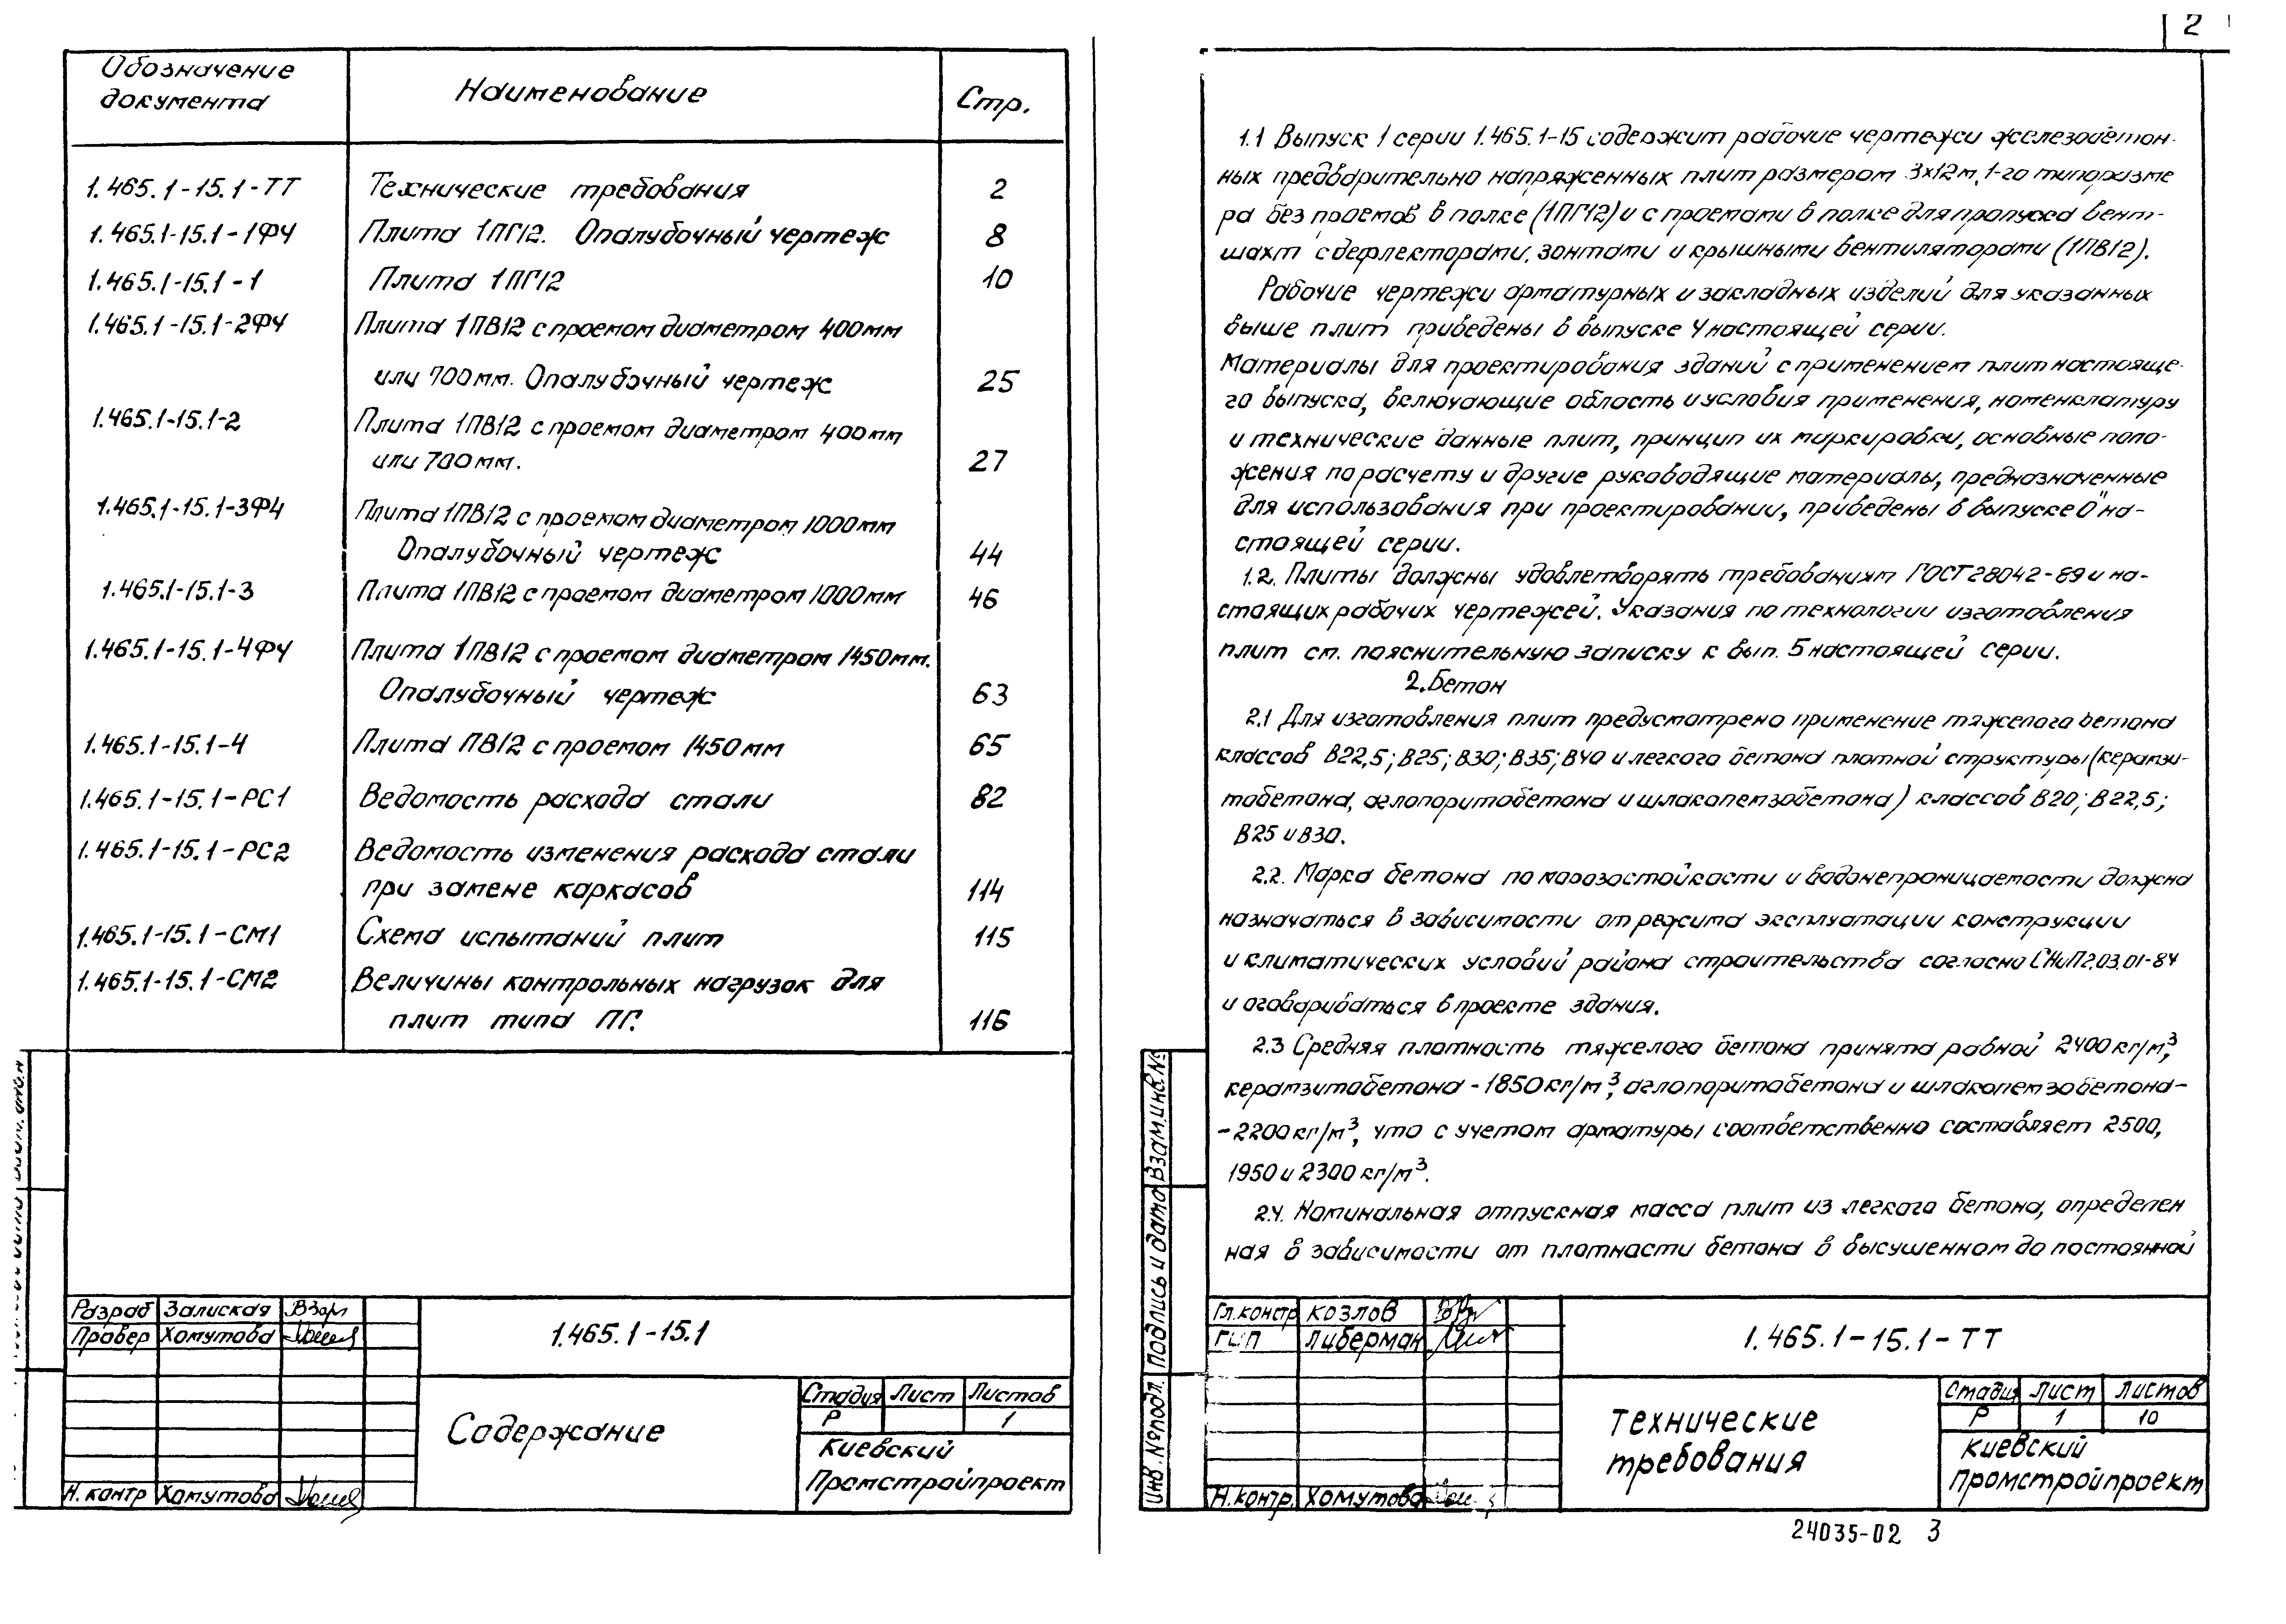 Обозначение документа | Наименование | Стр.
1.465.1-15.1-ТТ | Технические требования | 2
1.465.1-15.1-1ФЧ | Плита 1ПГ12. Опалубочный чертеж | 8
1.465.1-15.1-1 | Плита 1ПГ12 | 10
1.465.1-15.1-2ФЧ | Плита 1ПВ12 с проемом диаметром 400мм
или 700мм. Опалубочный чертеж | 25
1.465.1-15.1-2 | Плита 1ПВ12 с проемом диаметром 400мм
или 700мм. | 27
1.465.1-15.1-3ФЧ | Плита 1ПВ12 с проемом диаметром 1000мм
Опалубочный чертеж | 44
1.465.1-15.1-3 | Плита 1ПВ12 с проемом диаметром 1000мм | 46
1.465.1-15.1-4ФЧ | Плита 1ПВ12 с проемом диаметром 1450мм.
Опалубочный чертеж | 63
1.465.1-15.1-4 | Плита ПВ12 с проемом 1450мм | 65
1.465.1-15.1-РС1 | Ведомость расхода стали | 82
1.465.1-15.1-РС2 | Ведомость изменения расхода стали
при замене каркасов | 114
1.465.1-15.1-СМ1 | Схема испытаний плит | 115
1.465.1-15.1-СМ2 | Величины контрольных нагрузок для
плит типа ПГ. | 116
Разраб Залиская
Провер Хомутова
Н.контр Хомутова
1.465.1-15.1
Содержание
Стадия Лист Листов
Р 1
Киевский
Промстройпроект
2
1.1 Выпуск 1 серии 1.465.1-15 содержит рабочие чертежи железобетон-
ных предварительно напряженных плит размером 3х12м, 1-го типоразме
ра без проемов в полке (1ПГ12) и с проемами в полке для пропуска вент-
шахт с дефлекторами, зонтами и крышными вентиляторами (1ПВ12).
Рабочие чертежи арматурных и закладных изделий для указанных
выше плит приведены в выпуске 4 настоящей серии.
Материалы для проектирования зданий с применением плит настояще-
го выпуска, включающие область и условия применения, номенклатуру
и технические данные плит, принцип их маркировки, основные поло-
жения по расчету и другие руководящие материалы, предназначенные
для использования при проектировании, приведены в выпуске 0" на-
стоящей серии.
1.2. Плиты должны удовлетворять требованиям ГОСТ 28042-89 и на-
стоящих рабочих чертежей. Указания по технологии изготовления
плит см. пояснительную записку к вып. 5 настоящей серии.
2. Бетон
2.1 Для изготовления плит предусмотрено применение тяжелого бетона
классов В22,5; В25; В30; В35; В40 и легкого бетона плотной структуры (керамзи-
тобетона, аглопоритобетона и шлакопемзобетона) классов В20; В22,5;
В25 и В30.
2.2. Марка бетона по морозостойкости и водонепроницаемости должна
назначаться в зависимости от режима эксплуатации конструкции
и климатических условий района строительства согласно СНиП 2.03.01-84
и оговариваться в проекте здания.
2.3 Средняя плотность тяжелого бетона принята равной 2400кг/м³,
керамзитобетона - 1850кг/м³, аглопоритобетона и шлакопемзобетона-
- 2200кг/м³, что с учетом арматуры соответственно составляет 2500,
1950 и 2300кг/м³.
2.4. Номинальная отпускная масса плит из легкого бетона, определен
ная в зависимости от плотности бетона в высушенном до постоянной
Взам.инв.№
Подпись и дата
Инв.№подл.
Гл.констр Козлов
ГИП Либерман
Н.контр. Хомутова
1.465.1-15.1-ТТ
Технические
требования
Стадия Лист Листов
Р 1 10
Киевский
Промстройпроект
24035-02 3